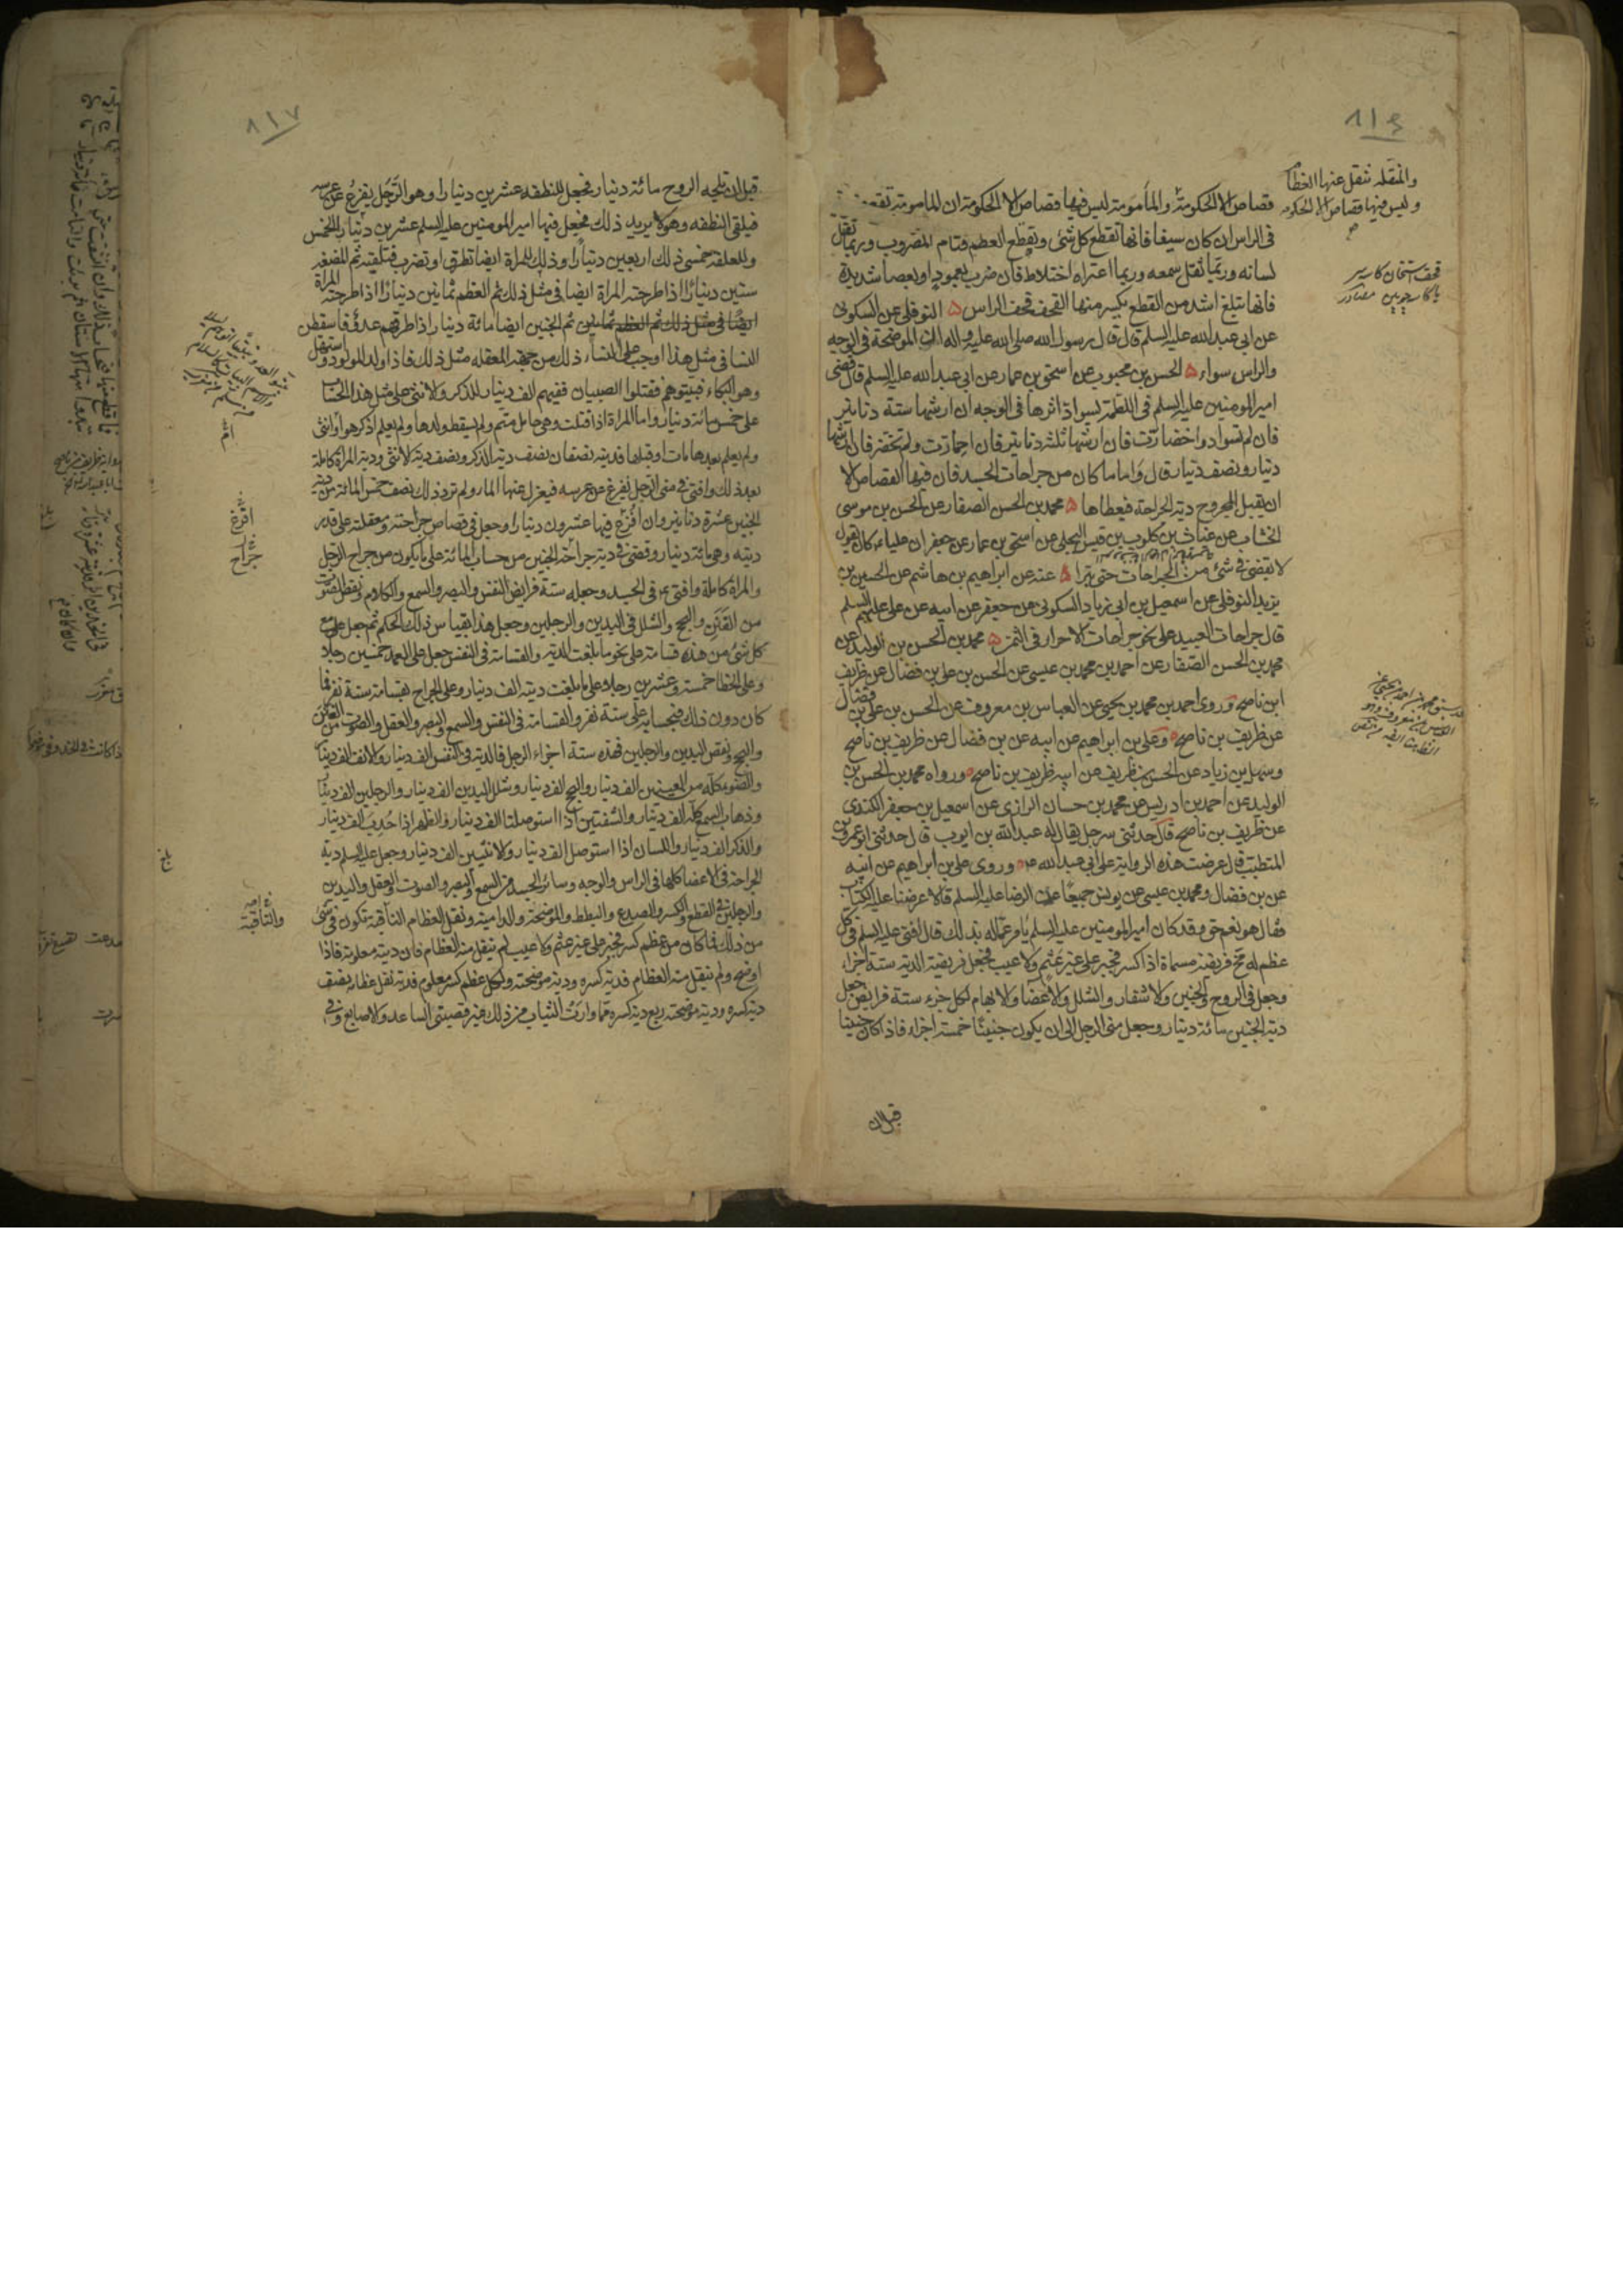 ٨١٦
والمنقله تنقل عنها العظام
وليس فيها قصاص الا الحكومه
قصاص الا الحكومة والمأمومة ليس فيها قصاص الا الحكومة ان المامومة تقع
فى الراس ان كان سيفا فانها تقطع كل شئ وتقطع العظم فتام المضروب وربما ثقل
لسانه وربما ثقل سمعه وربما اعتراه اختلاط فان ضرب بعمود او بعصا شديدة
فانها تبلغ اشد من القطع يكسر منها القحف قحف الراس ۵ النوفلى عن السكونى
عن ابى عبد الله عليه السلم قال قال رسول الله صلى الله عليه واله ان الموضحة فى الوجه
والراس سواء ۵ الحسن بن محبوب عن اسحق بن عمار عن ابى عبد الله عليه السلم قال قضى
امير المومنين عليه السلم فى اللطمة يسود اثرها فى الوجه ان ارشها ستة دنانير
فان لم تسواد واخضارت فان ارشها ثلثة دنانير فان احمارت ولم تخضر فان ارشها
دينار ونصف دينار قال واما ما كان من جراحات الجسد فان فيها القصاص الا
ان يقبل المجروح دية الجراحة فيعطاها ۵ محمد بن الحسن الصفار عن الحسن بن موسى
الخشاب عن غياث بن كلوب بن قيس البجلى عن اسحق بن عمار عن جعفر ان عليا ع كان يقول
لا يقضى فى شئ من الجراحات حتى تبرا ۵ عنه عن ابراهيم بن هاشم عن الحسين بن
يزيد النوفلى عن اسمعيل بن ابى زياد السكونى عن جعفر عن ابيه عن على عليهم السلم
قال جراحات العبيد على نحو جراحات الاحرار فى الثمن ۵ محمد بن الحسن بن الوليد عن
محمد بن الحسن الصفار عن احمد بن محمد بن عيسى عن الحسن بن على بن فضال عن ظريف
ابن ناصح وروى احمد بن محمد بن يحيى عن العباس بن معروف عن الحسن بن على بن فضال
عن ظريف بن ناصح وعلى بن ابراهيم عن ابيه عن بن فضال عن ظريف بن ناصح
وسهل بن زياد عن الحسن بن ظريف عن ابيه ظريف بن ناصح ورواه محمد بن الحسن بن
الوليد عن احمد بن ادريس عن محمد بن حسان الرازى عن اسمعيل بن جعفر الكندى
عن ظريف بن ناصح قال حدثنى رجل يقال له عبد الله بن ايوب قال حدثنى ابو عمرو
المتطبب قال عرضت هذه الرواية على ابى عبد الله ع وروى على بن ابراهيم عن ابيه
عن بن فضال ومحمد بن عيسى عن يونس جميعا عن الرضا عليه السلم قالا عرضنا عليه الكتاب
فقال هو نعم حق وقد كان امير المومنين عليه السلم يامر عماله بذلك قال افتى عليه السلم فى كل
عظم له مخ فريضة مسماة اذا كسر فجبر على غير عثم ولا عيب فجعل فريضة الدية ستة اجزاء
وجعل فى الروح والجنين والاشفار والشلل والاعضا والابهام لكل جزء ستة فرايض جعل
دية الجنين مائة دينار وجعل منى الرجل الى ان يكون جنينا خمسة اجزاء فاذا كان جنينا
قبل ان
٨١٧
قبل ان تلجه الروح مائة دينار فجعل للنطفه عشرين دينارا وهو الرجل يفزع عن عرسه
فيلقى النطفه وهو لا يريد ذلك فجعل فيها امير المومنين عليه السلم عشرين دينار الخمس
وللعلقة خمسى ذلك اربعين دينارا وذلك للمراة ايضا تطرق او تضرب فتلقيه ثم للمضغه
ستين دينارا اذا طرحته المراة ايضا فى مثل ذلك ثم العظم ثمانين دينارا اذا طرحته المراة
ايضا فى مثل ذلك ثم العظم ثمانين ثم الجنين ايضا مائة دينار اذا طرقهم عدو فاسقطن
النسا فى مثل هذا اوجب على النساء ذلك من جهة المعقله مثل ذلك فاذا ولد المولود واستهل
وهو البكاء فبيتوهم فقتلوا الصبيان ففيهم الف دينار للذكر والانثى على مثل هذا الحساب
على خمس مائة دينار واما المراة اذا قتلت وهى حامل متم ولم يسقط ولدها ولم يعلم اذكر هو او انثى
ولم يعلم بعدها مات او قبلها فديته نصفان نصف دية الذكر ونصف دية الانثى ودية المراة كاملة
بعد ذلك وافتى فى منى الرجل يفرغ عن عرسه فيعزل عنها الماء ولم ترد ذلك نصف خمس المائة من دية
الجنين عشرة دنانير وان افرغ فيها عشرون دينارا وجعل فى قصاص جراحته ومعقلته على قدر
ديته وهى مائة دينار وقضى فى دية جراحة الجنين من حساب المائة على ما يكون من جراح الرجل
والمراة كاملة وافتى ع فى الجسد وجعله ستة فرايض النفس والبصر والسمع والكلام ونقص الصوت
من الغنن والبحح والشلل فى اليدين والرجلين وجعل هذا بقياس ذلك الحكم ثم جعل مع
كل شئ من هذه قسامة على نحو ما بلغت الدية والقسامة فى النفس جعل على العمد خمسين رجلا
وعلى الخطا خمسة وعشرين رجلا وعلى ما بلغت ديته الف دينار وعلى الجراح بقسامة ستة نفر فما
كان دون ذلك فبحسابه على ستة نفر والقسامة فى النفس والسمع والبصر والعقل والصوت من الغنن
والبحح ونقص اليدين والرجلين فهذه ستة اجزاء الرجل فالدية فى النفس الف دينار والانف الف دينار
والضوء كله من العينين الف دينار والبحح الف دينار وشلل اليدين الف دينار والرجلين الف دينار
وذهاب السمع كله الف دينار والشفتين اذا استوصلتا الف دينار والظهر اذا حدب الف دينار
والذكر الف دينار واللسان اذا استوصل الف دينار والانثيين الف دينار وجعل عليه السلم دية
الجراحة فى الاعضا كلها فى الراس والوجه وسائر الجسد من السمع والبصر والصوت والعقل واليدين
والرجلين فى القطع والكسر والصدع والبطط والموضحة والدامية ونقل العظام الناقبة تكون فى شئ
من ذلك فما كان من عظم كسر فجبر على غير عثم ولا عيب لم ينقل منه العظام فان ديته معلومة فاذا
اوضح ولم ينقل منه العظام فدية كسره ودية موضحته ولكل عظم كسر معلوم فدية نقل عظامه نصف
دية كسره ودية موضحته ربع دية كسره مما وارت الثياب من ذلك غير قصبتى الساعد والاصابع وفى
افرغ
جراح
والناقبة